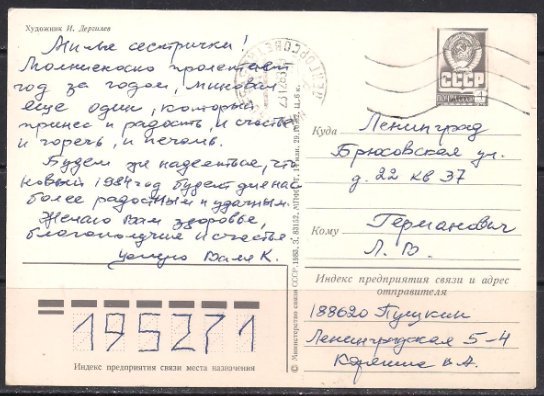 Художник И. Дергилев
Милые сестрички!
Молниеносно пролетает
год за годом, миновал
еще один, который
принес и радость, и счастье
и горечь, и печаль.
Будем же надеяться, что
новый 1984 год будет для нас
более радостным и удачным.
Желаю Вам здоровье,
благополучие и счастье
Целую Валя К.
СССР
Куда Ленинград
Брюсовская ул.
д. 22 кв 37
Кому Германович
Л. В.
Индекс предприятия связи и адрес
отправителя
188620 Пушкин
Ленинградская 5-4
В. А.
195271
Индекс предприятия связи места назначения
© Министерство связи СССР, 1983.